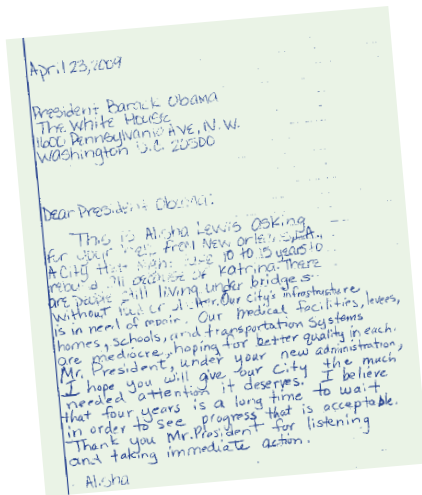 April 23, 2009
President Barack Obama
The White House
1600 Pennsylvania AVE, N.W.
Washington D.C. 20500
Dear President Obama:
This is Alisha Lewis asking
for your help from New Orleans, LA.,
A City that might take 10 to 15 years to
rebuild all because of Katrina. There
are people still living under bridges
without food or shelter. Our city's infrastructure
is in need of repair. Our medical facilities, levees,
homes, schools, and transportation systems
are mediocre, hoping for better quality in each.
Mr. President, under your new administration,
I hope you will give our city the much
needed attention it deserves. I believe
that four years is a long time to wait
in order to see progress that is acceptable.
Thank you Mr. President for listening
and taking immediate action.
Alisha